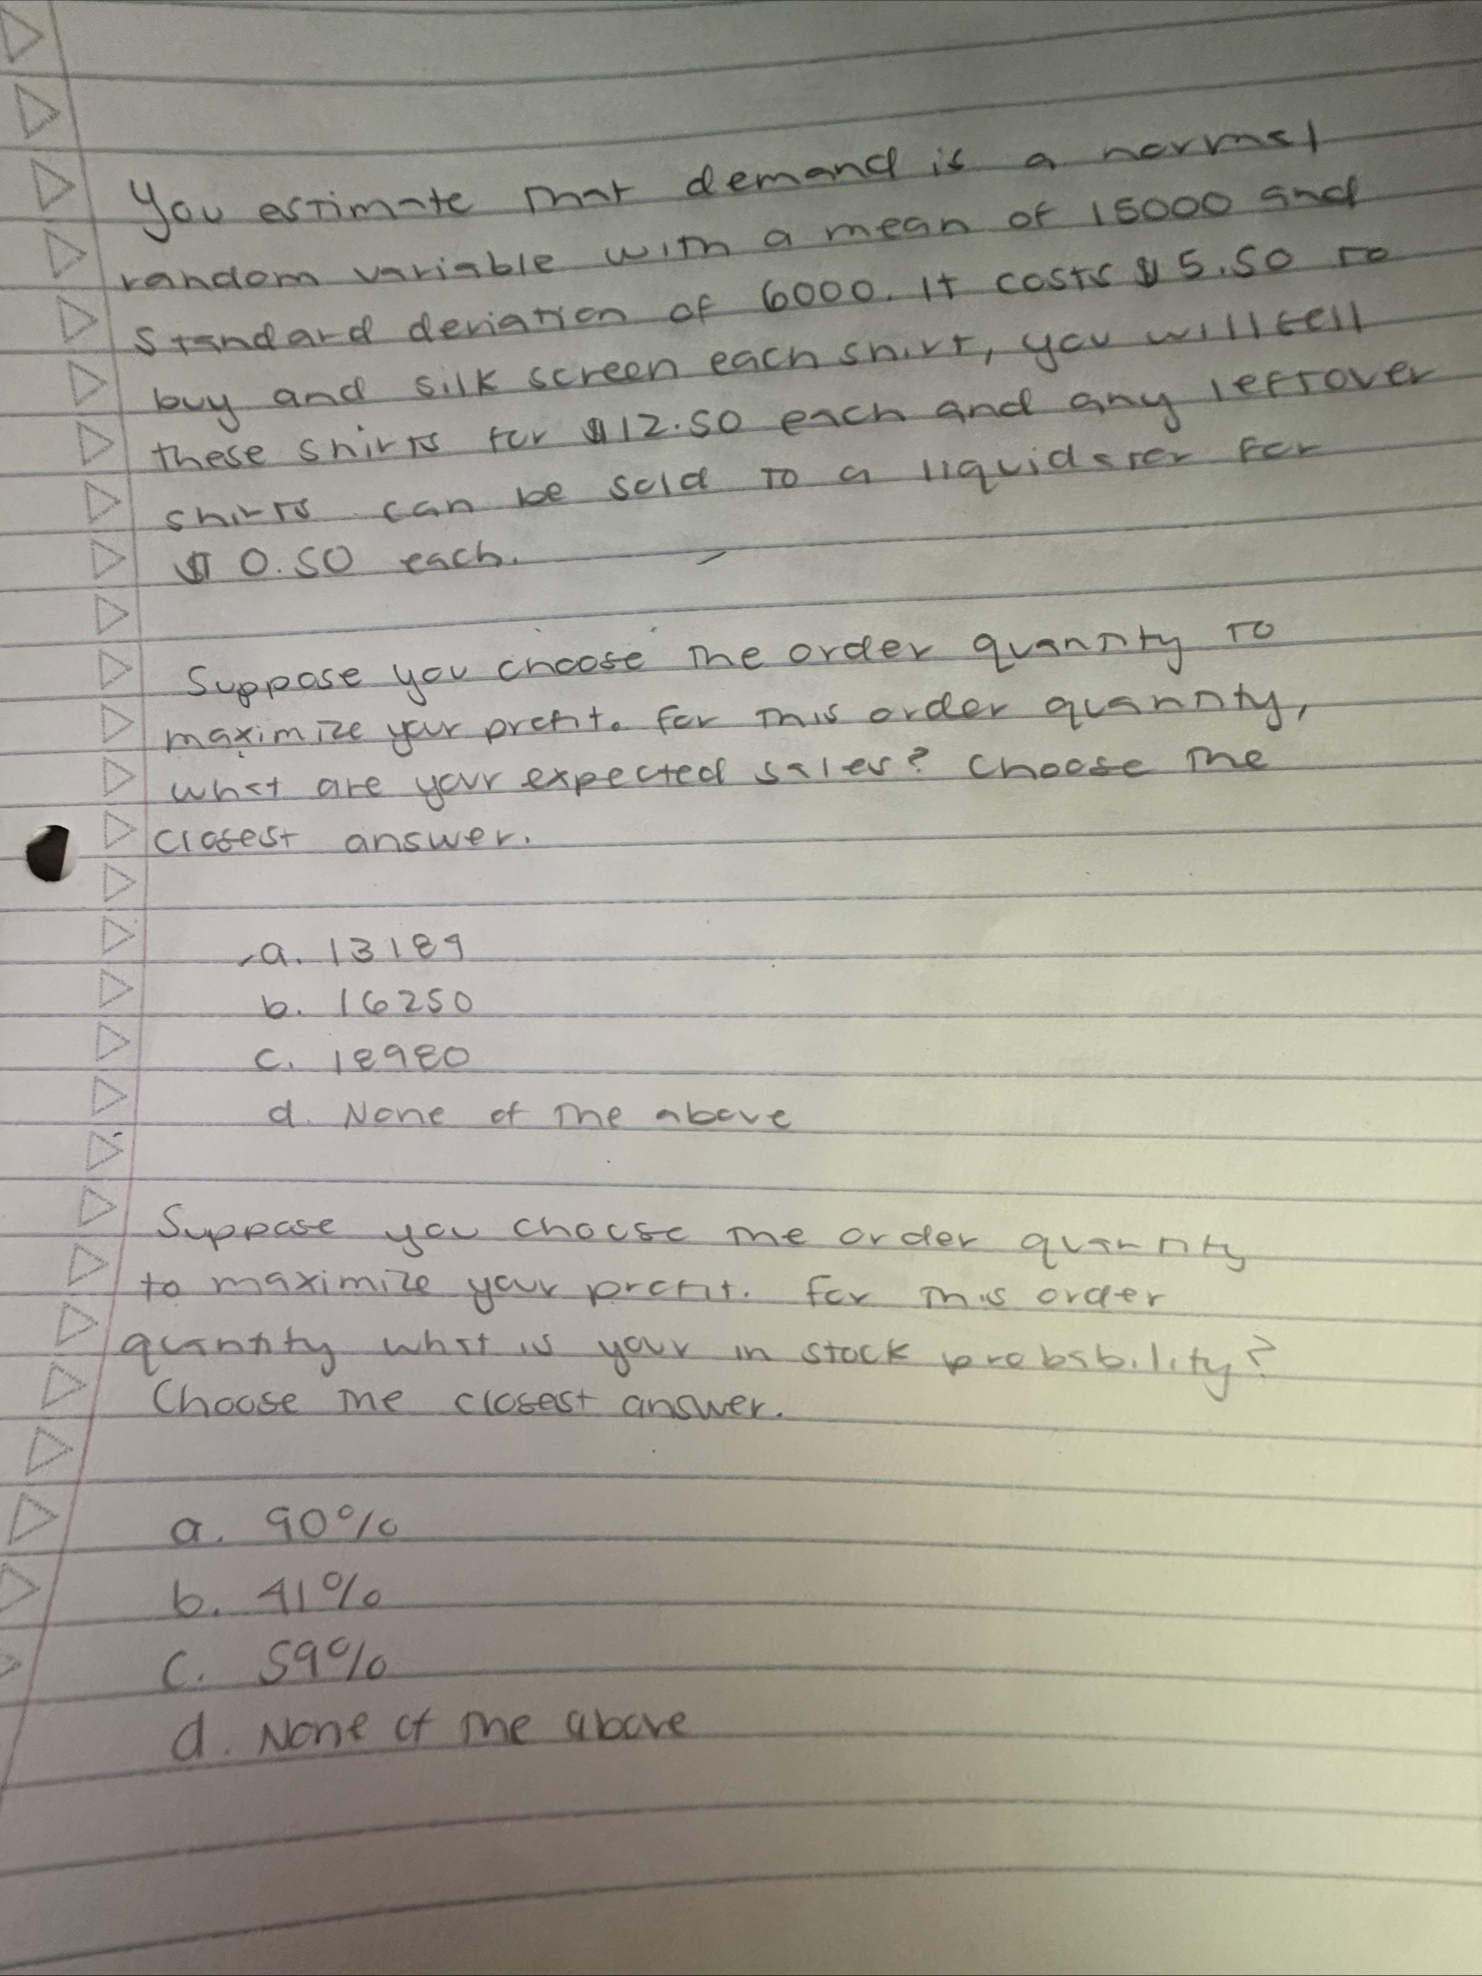 You estimate that demand is a normal
random variable with a mean of 15000 and
standard deviation of 6000. It costs $5.50 to
buy and silk screen each shirt, you will sell
these shirts for $12.50 each and any leftover
shirts can be sold to a liquidator for
$0.50 each.
Suppose you choose the order quantity to
maximize your profit. For this order quantity,
what are your expected sales? Choose the
closest answer.
a. 13189
b. 16250
c. 18980
d. None of the above
Suppose you choose the order quantity
to maximize your profit. For this order
quantity what is your in stock probability?
Choose the closest answer.
a. 90%
b. 41%
c. 59%
d. None of the above